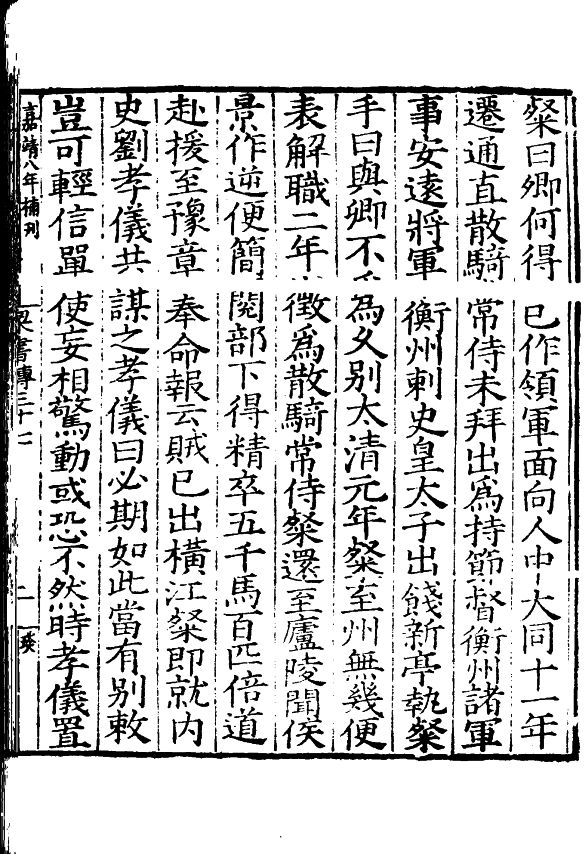 粲曰卿何得已作領軍面向人中大同十一年
遷通直散騎常侍未拜出爲持節督衡州諸軍
事安遠將軍衡州刺史皇太子出餞新亭執粲
手曰與卿不爲久别太清元年粲至州無幾便
表解職二年徵爲散騎常侍粲還至廬陵聞侯
景作逆便簡閱部下得精卒五千馬百匹倍道
赴援至豫章奉命報云賊已出橫江粲即就内
史劉孝儀共謀之孝儀曰必期如此當有别敕
豈可輕信單使妄相驚動或恐不然時孝儀置
嘉靖八年補刊
梁書傳三十七
二